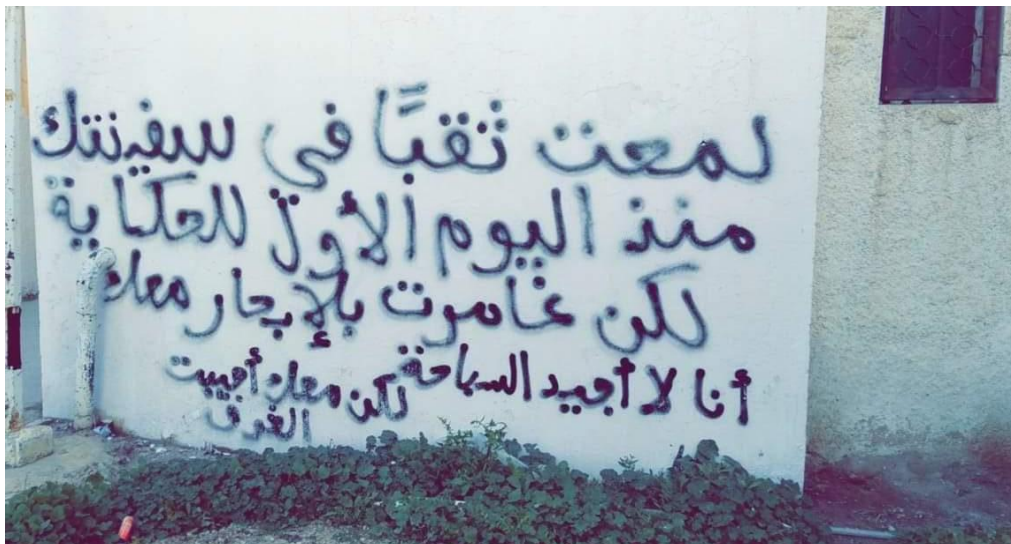 لمعت ثقبًا في سفينتك
منذ اليوم الأول للحكاية
لكن غامرت بالإبحار معك
أنا لا أجيد السباحة لكن معك أحببت
الغرق